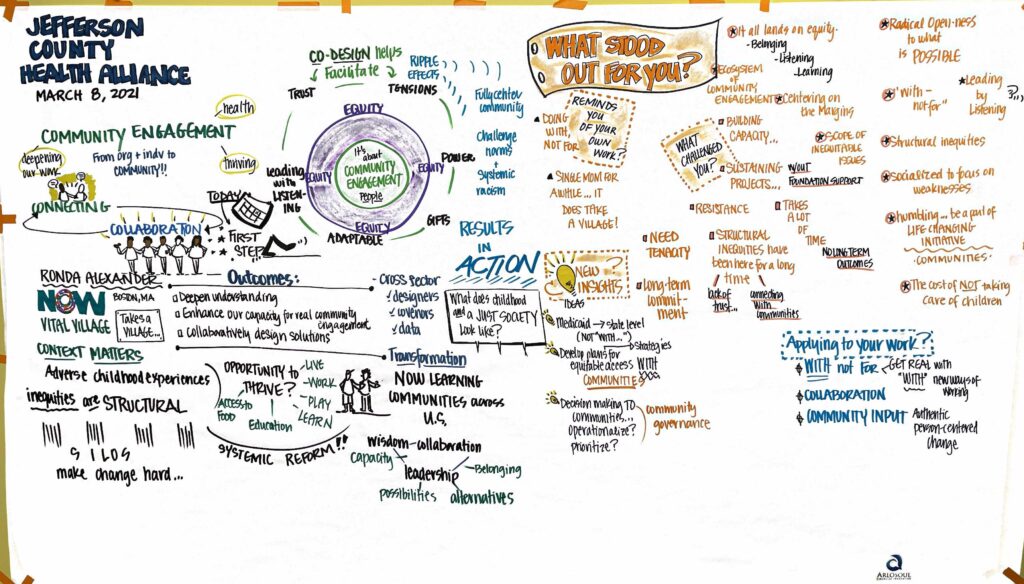 JEFFERSON
COUNTY
HEALTH ALLIANCE
MARCH 8, 2021
COMMUNITY ENGAGEMENT
health
thriving
deepening
our work
From org + indv to
COMMUNITY!!
CONNECTING
COLLABORATION
TODAY
* FIRST
* STEP
CO-DESIGN helps
Facilitate
TRUST
TENSIONS
RIPPLE
EFFECTS
Fully center
community
Challenge
norms
+
Systemic
racism
POWER
GIFTS
ADAPTABLE
Leading
with
LISTEN-
ING
EQUITY
EQUITY
EQUITY
EQUITY
It's
about
COMMUNITY
ENGAGEMENT
People
RESULTS
IN
ACTION
RONDA ALEXANDER
NOW
BOSTON, MA
VITAL VILLAGE
TAKES A
VILLAGE...
Outcomes:
Deepen understanding
Enhance our capacity for real community
engagement
Collaboratively design solutions
CROSS SECTOR
designers
covenors
data
What does childhood
and a JUST SOCIETY
Look like?
CONTEXT MATTERS
Adverse childhood experiences
inequities are STRUCTURAL
SILOS
make change hard...
OPPORTUNITY to
THRIVE?
LIVE
WORK
PLAY
LEARN
Access to
Food
Education
SYSTEMIC REFORM!!
Transformation
NOW LEARNING
COMMUNITIES ACROSS
U.S.
wisdom-collaboration
capacity
leadership
Belonging
possibilities
alternatives
WHAT STOOD
OUT FOR YOU?
REMINDS
YOU
OF YOUR
OWN
WORK?
DOING
WITH,
NOT FOR
SINGLE MOM FOR
AWHILE... IT
DOES TAKE
A VILLAGE!
WHAT
CHALLENGED
YOU?
BUILDING
CAPACITY...
SUSTAINING
PROJECTS...
W/OUT
FOUNDATION SUPPORT
RESISTANCE
TAKES
A LOT
OF
TIME
NEED
TENACITY
STRUCTURAL
INEQUITIES HAVE
been here for a long
time
NO LONG TERM
OUTCOMES
Long-term
commit-
ment
lack of
trust...
connecting
with
communities
It all lands on equity.
- Belonging
- Listening
- Learning
ECOSYSTEM
OF
COMMUNITY
ENGAGEMENT
Centering on
the Margins
SCOPE OF
INEQUITABLE
ISSUES
Radical Open-ness
to what
is POSSIBLE
Leading
by
Listening
"with-
not for"
Structural inequities
Socialized to focus on
weaknesses.
humbling... be a part of
LIFE CHANGING
INITIATIVE
-COMMUNITIES-
The cost of NOT taking
care of children
NEW
INSIGHTS
?
IDEAS
Medicaid → state level
(NOT "WITH"...)
strategies
Develop plans for
equitable access WITH
COMMUNITIES
Decision making TO
communities...
operationalize?
prioritize?
community
governance
Applying to your work?
WITH not FOR
GET REAL with
"WITH" new ways of
working
COLLABORATION
COMMUNITY INPUT
Authentic
person-centered
change
ARLOSOUL